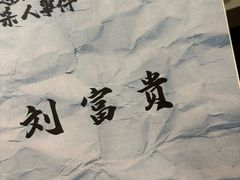 杀人事件
刘富贵